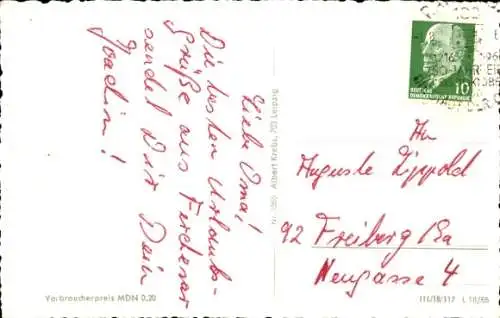 Liebe Oma!
Die besten Urlaubs-
grüße aus Ferchesar
sendet Dir Dein
Joachim!
Verbraucherpreis MDN 0,20
Albert Krebs, 703 Leipzig
DEUTSCHE
DEMOKRATISCHE REPUBLIK
10
An
Auguste Lippold
92 Freiberg Sa
Neugasse 4
III/18/117 L 10/66